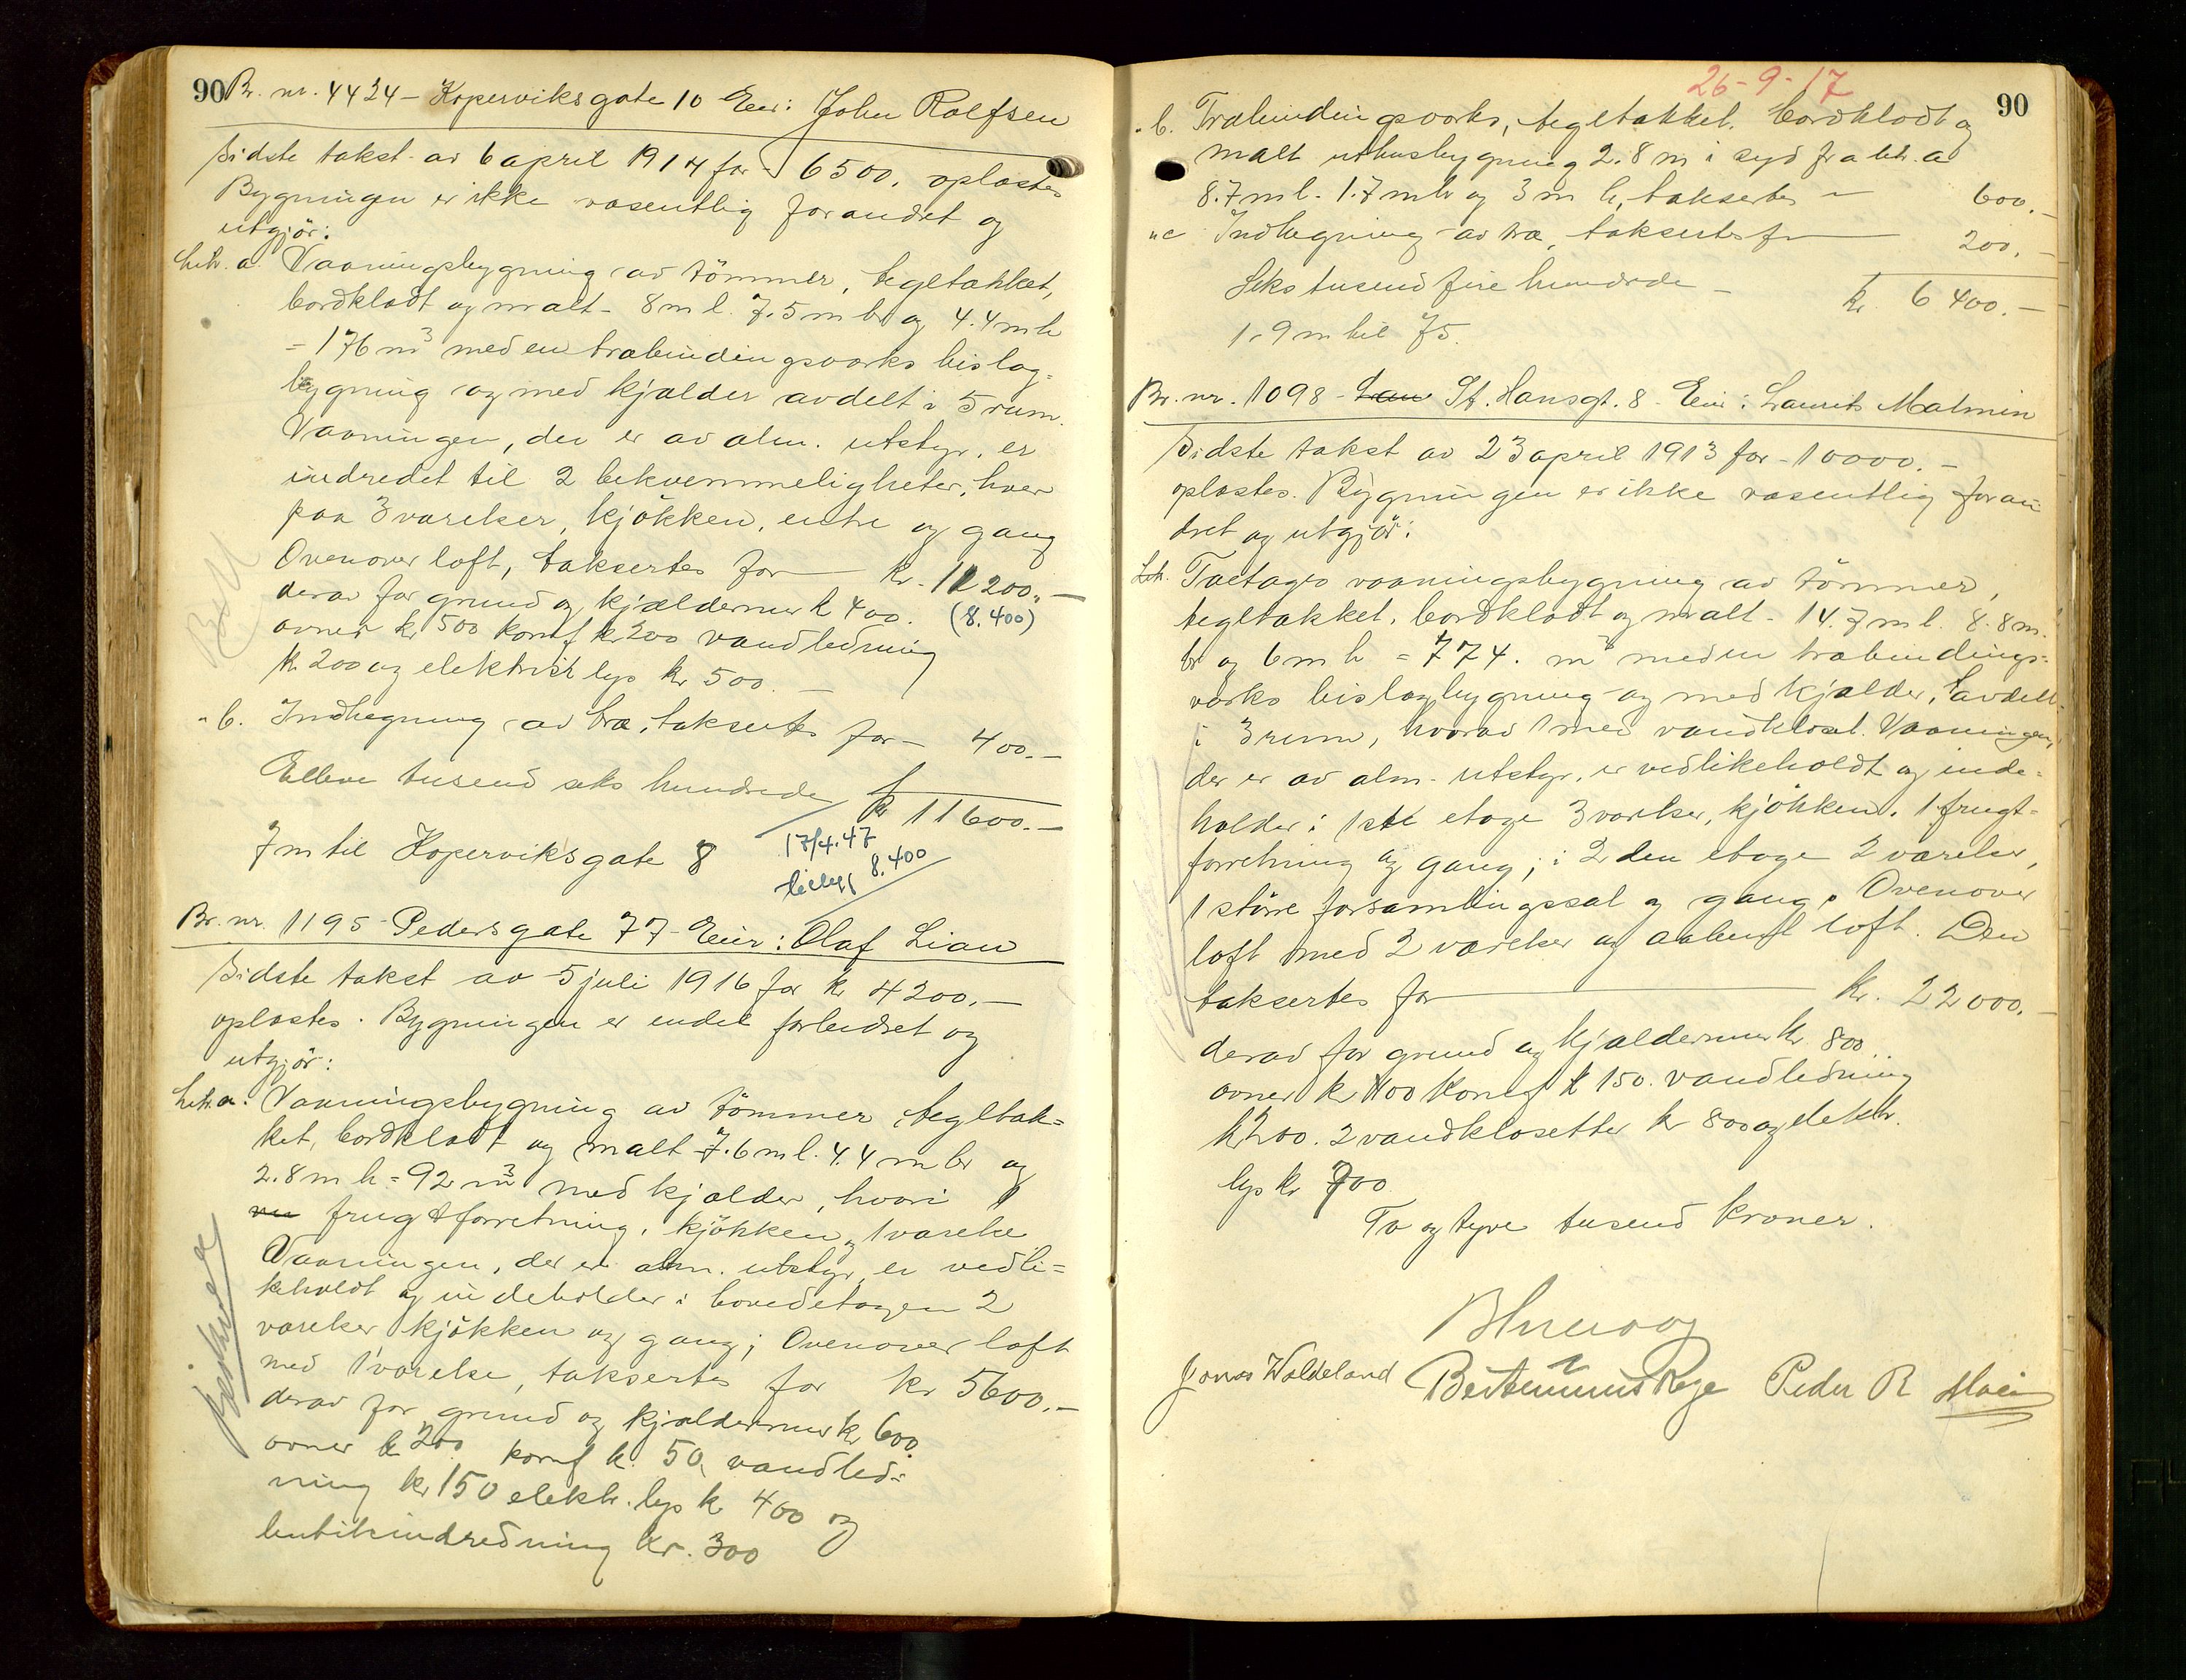 90 Br. nr. 4424 - Koperviksgate 10 Eier: John Rolfsen
Sidste takst av 6 april 1914 for 6500. oplæstes
Bygningen er ikke væsentlig forandret og
utgjör:
Litr. a. Vaaningsbygning av tömmer, tegltækket,
bordklædt og malt - 8 m l. 7.5 m br og 4.4 m h
= 176 m3 med en træbindingsværks bislag=
bygning og med kjælder avdelt i 5 rum.
Vaaningen, der er av alm. utstyr, er
indredet til 2 bekvemmeligheter, hver
paa 3 værelser, kjökken, entre og gang
Ovenover loft, taksertes for kr. 11200.-
derav for grund og kjældermur kr 400. (8.400)
ovner kr 500 komf kr 200 vandledning
kr. 200 og elektrisk lys kr 500.-
" b. Indhegning av træ, taksertes for - 400.-
Elleve tusend seks hundrede kr 11600.-
7 m til Koperviksgate 8
17/4.47
8.400
Br. nr. 1195 - Pedersgate 77 - Eier: Olaf Lian
Sidste takst av 5 juli 1916 for kr 4200.-
oplæstes. Bygningen er endel forbedret og
utgjör:
Litr. a. Vaaningsbygning av tömmer, tegltæk=
ket, bordklædt og malt - 7.6 m l. 4.4 m br og
2.8 m h = 92 m3 med kjælder, hvori 1
frugtforretning, kjökken og 1 værelse
Vaaningen, der er alm. utstyr, er vedli=
keholdt og indeholder i hovedetagen 2
værelser kjökken og gang; Ovenover loft
med 1 værelse, taksertes for kr 5600.-
derav for grund og kjældermur kr 600.
ovner kr 200 komf kr. 50, vandled=
ning kr 150 elektr. lys kr 400 og
butikindredning kr. 300
26-9-17
90
" b. Træbindingsværks, tegltækket, bordklædt og
malt uthusbygning 2.8 m i syd fra litr. a
8.7 m l. 1.7 m br og 3 m h, taksertes - 600.-
" c Indhegning av træ, taksertes for 200.-
Seks tusend fire hundrede - kr. 6400.-
1.9 m til 75.
Br. nr. 1098 - St. Hansgt. 8 - Eier: Laurits Malmin
Sidste takst av 23 april 1913 for - 10000.-
oplæstes. Bygningen er ikke væsentlig foran
dret og utgjör:
Litr. Toetages vaaningsbygning av tömmer,
tegltækket, bordklædt og malt - 14.7 m l. 8.8 m.
br og 6 m h = 774. m3 med en træbindings=
værks bislagbygning og med kjælder, avdelt
i 3 rum, hvorav 1 med vandklosæt. Vaaningen,
der er av alm. utstyr, er vedlikeholdt og inde=
holder i 1ste etage 3 værelser, kjökken, 1 frugt=
forretning og gang; i 2den etage 2 værelser,
1 större forsamlingssal og gang. Ovenover
loft med 2 værelser og aapent loft. Den
taksertes for kr. 22000.-
derav for grund og kjældermur kr. 800.
ovner kr 400 Komf kr 150. vandledning
kr 200. 2 vandklosetter kr 800 og elektr.
lys kr 700
To og tyve tusend kroner.
Jonas Waldeland Peder R